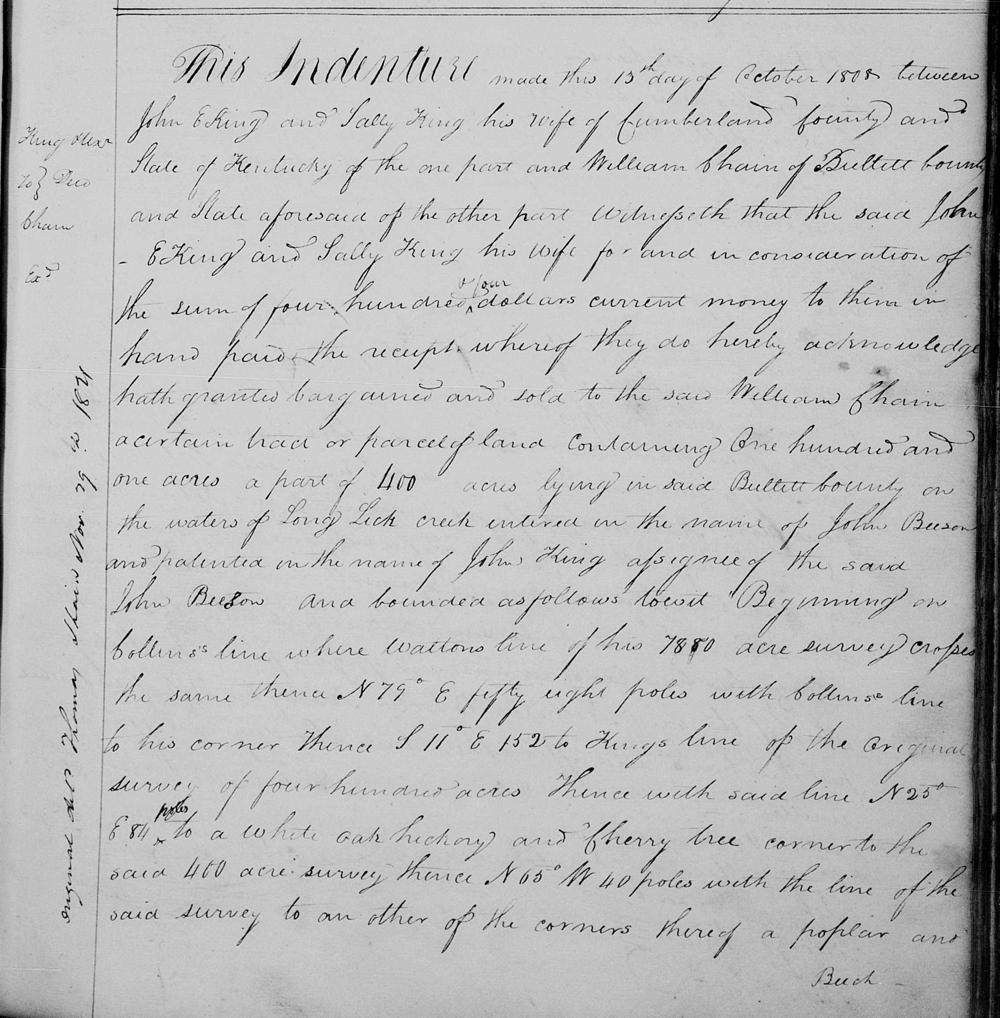 King & ux
To } Deed
Chain
Exd
original del. Thomas Nov. 29th 1821
This Indenture made this 13th day of October 1808 between
John E King and Sally King his wife of Cumberland County and
State of Kentucky of the one part and William Chain of Bullett County
and State aforesaid of the other part Witnesseth that the said John
- E King and Sally King his wife for and in consideration of
the sum of four hundred & four dollars current money to them in
hand paid the receipt whereof they do hereby acknowledge
hath granted bargained and sold to the said William Chain
a certain tract or parcel of land containing One hundred and
one acres a part of 400 acres lying in said Bullett County on
the waters of Long Lick creek entered in the name of John Beeson
and patented in the name of John King assignee of the said
John Beeson and bounded as follows towit Beginning on
Collins's line where Wattons line of his 7880 acre survey crosses
the same thence N 79° E fifty eight poles with Collins line
to his corner Thence S 11° E 152 to Kings line of the Original
survey of four hundred acres Thence with said line N 25°
E 84 poles to a white oak hickory and Cherry tree corner to the
said 400 acre survey thence N 65° W 40 poles with the line of the
said survey to an other of the corners thereof a poplar and
Beech